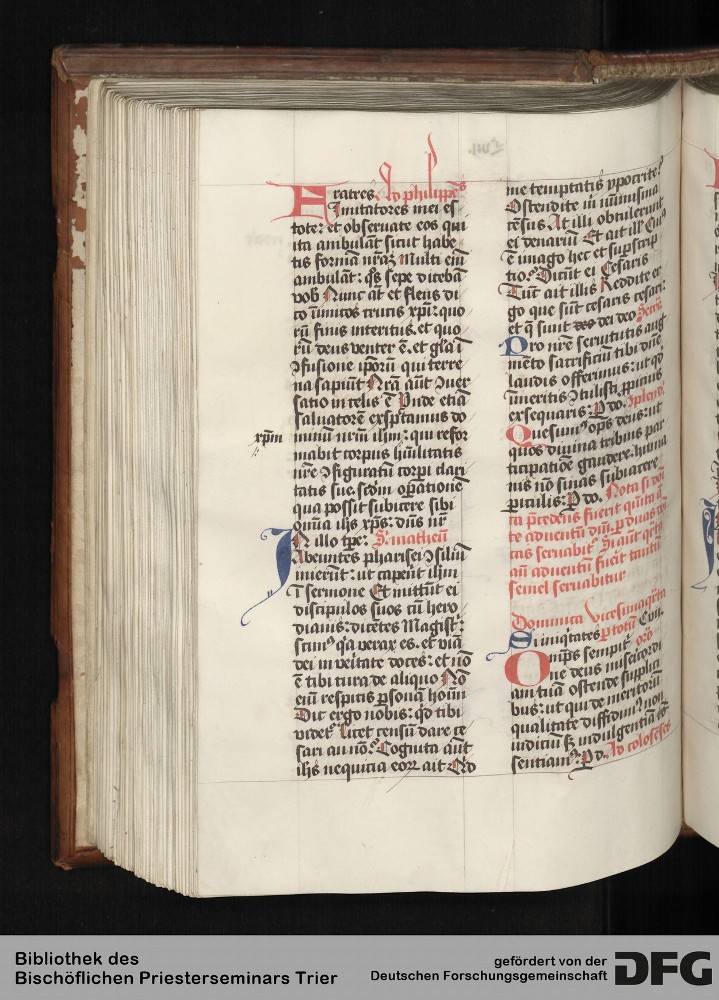 Fratres Ad philippēs
Imitatores mei es
tote: et obseruate eos qui
ita ambulāt sicut habe
tis formā nrāꝫ Multi eim̄
ambulāt: qͦs sepe dicebā
vob Nunc āt et flens di
co inimicos crucis xp̄i: quo
rū finis interitus. et quo
rū deus venter ē. et gl̄a ī
ꝯfusione ip̄orū qui terre
na sapiūt Nr̄a aūt ꝯuer
satio in celis ē Vnde etiā
saluatorē exspctamus do
xpm̄ minū nrm̄ ihm̄: qui refor
mabit corpus hūilitatis
nr̄e ꝯfiguratū corpi clari
tatis sue. scdm̄ opationē
qua possit subicere sibi
om̄ia ihs xp̄s: dn̄s nr̄
IN illo tp̄e: S. matheū
Abeuntes pharisei ꝯsiliū
inierūt: ut caperēt ihm̄
ī sermone Et mittūt ei
discipulos suos cū hero
dianis: dicētes Magist̄:
scimꝰ qͥa verax es. et viā
dei in veritate doces: et nō
ē tibi cura de aliquo Nō
eim̄ respicis psonā hoīm
Dic ergo nobis: qͥd tibi
videtͬ Licet censū dare ce
sari an nō? Cognita aūt
ihs nequicia eoꝝ ait Qͥd
me temptatis ypocrite?
Ostendite m̄ numisma
cēsus At illi obtulerunt
ei denariū Et ait ill̄ Cuiꝰ
ē imago hec et supscrip
tio? Dicūt ei Cesaris
Tūc ait illis Reddite er
go que sūt cesaris cesari:
et q̄ sunt dei deo Secr̄
Pro nr̄e seruitutis aug
mēto sacrificiū tibi dn̄e
laudis offerimus: ut qd̄
īmeritis ꝯtulisti ppicius
exsequaris: P do. ꝯplend̄
Quesumꝰ ops̄ deus: ut
quos diuina tribuis par
ticipatiōe gaudere: huma
nis nō sinas subiacere
piculis: P do. Nota si dn̄i
ca p̄cedens fuerit qͥnta an̄
te aduentū dn̄i. p duas
cas seruabitͬ Si aūt qͣrta
an̄ aduentū fuerit tantū
semel seruabitur
Dominica vicesimaqͣrta
Si iniqͥtates p totū Cūu.
Om̄ps sempit̄ orō
ne deus misericordi
am tuā ostende supplici
bus: ut qui de meritorū
qualitate diffidimꝰ non
iudiciū sꝫ indulgentiā
sentiamꝰ. P d. Ad colosēs̄
Bibliothek des
Bischöflichen Priesterseminars Trier
gefördert von der
Deutschen Forschungsgemeinschaft
DFG